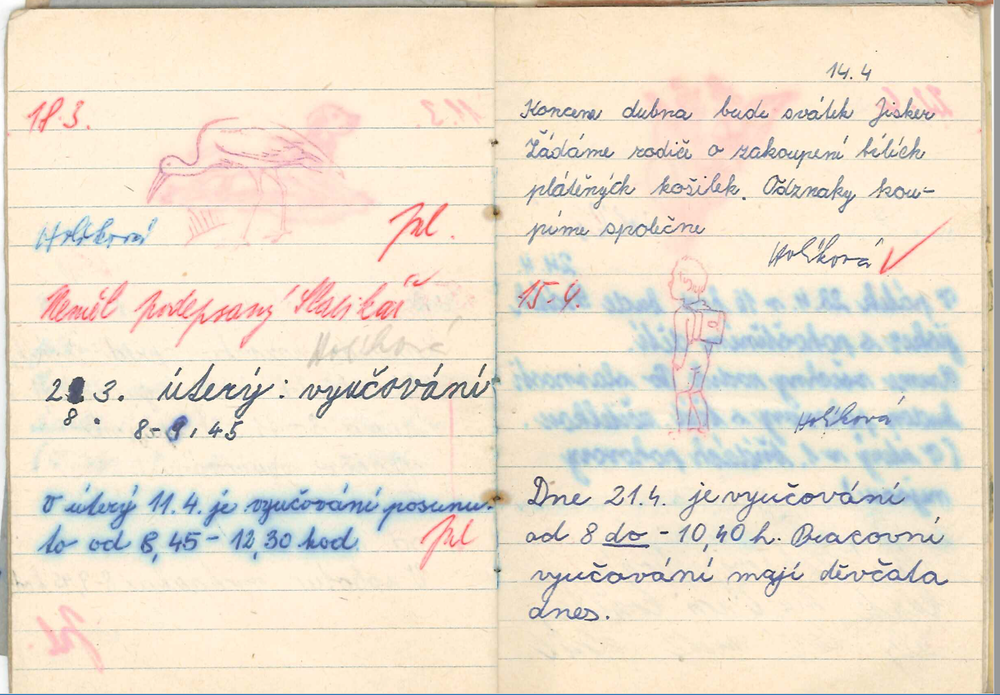 18.3.
Holíková
Jel.
Neměl podepsaný Slabikář
Holíková
28. 3. úterý: vyučování
8-9,45
V úterý 11.4. je vyučování posunu-
to od 8,45 - 12,30 hod
Jel
14.4
Koncem dubna bude svátek Jisker
Žádáme rodiče o zakoupení bílích
plátěných košilek. Odznaky kou-
píme společne
Holíková
15.4.
Holíková
Dne 21.4. je vyučování
od 8 do - 10,40 h. Pracovní
vyučování mají děvčata
dnes.